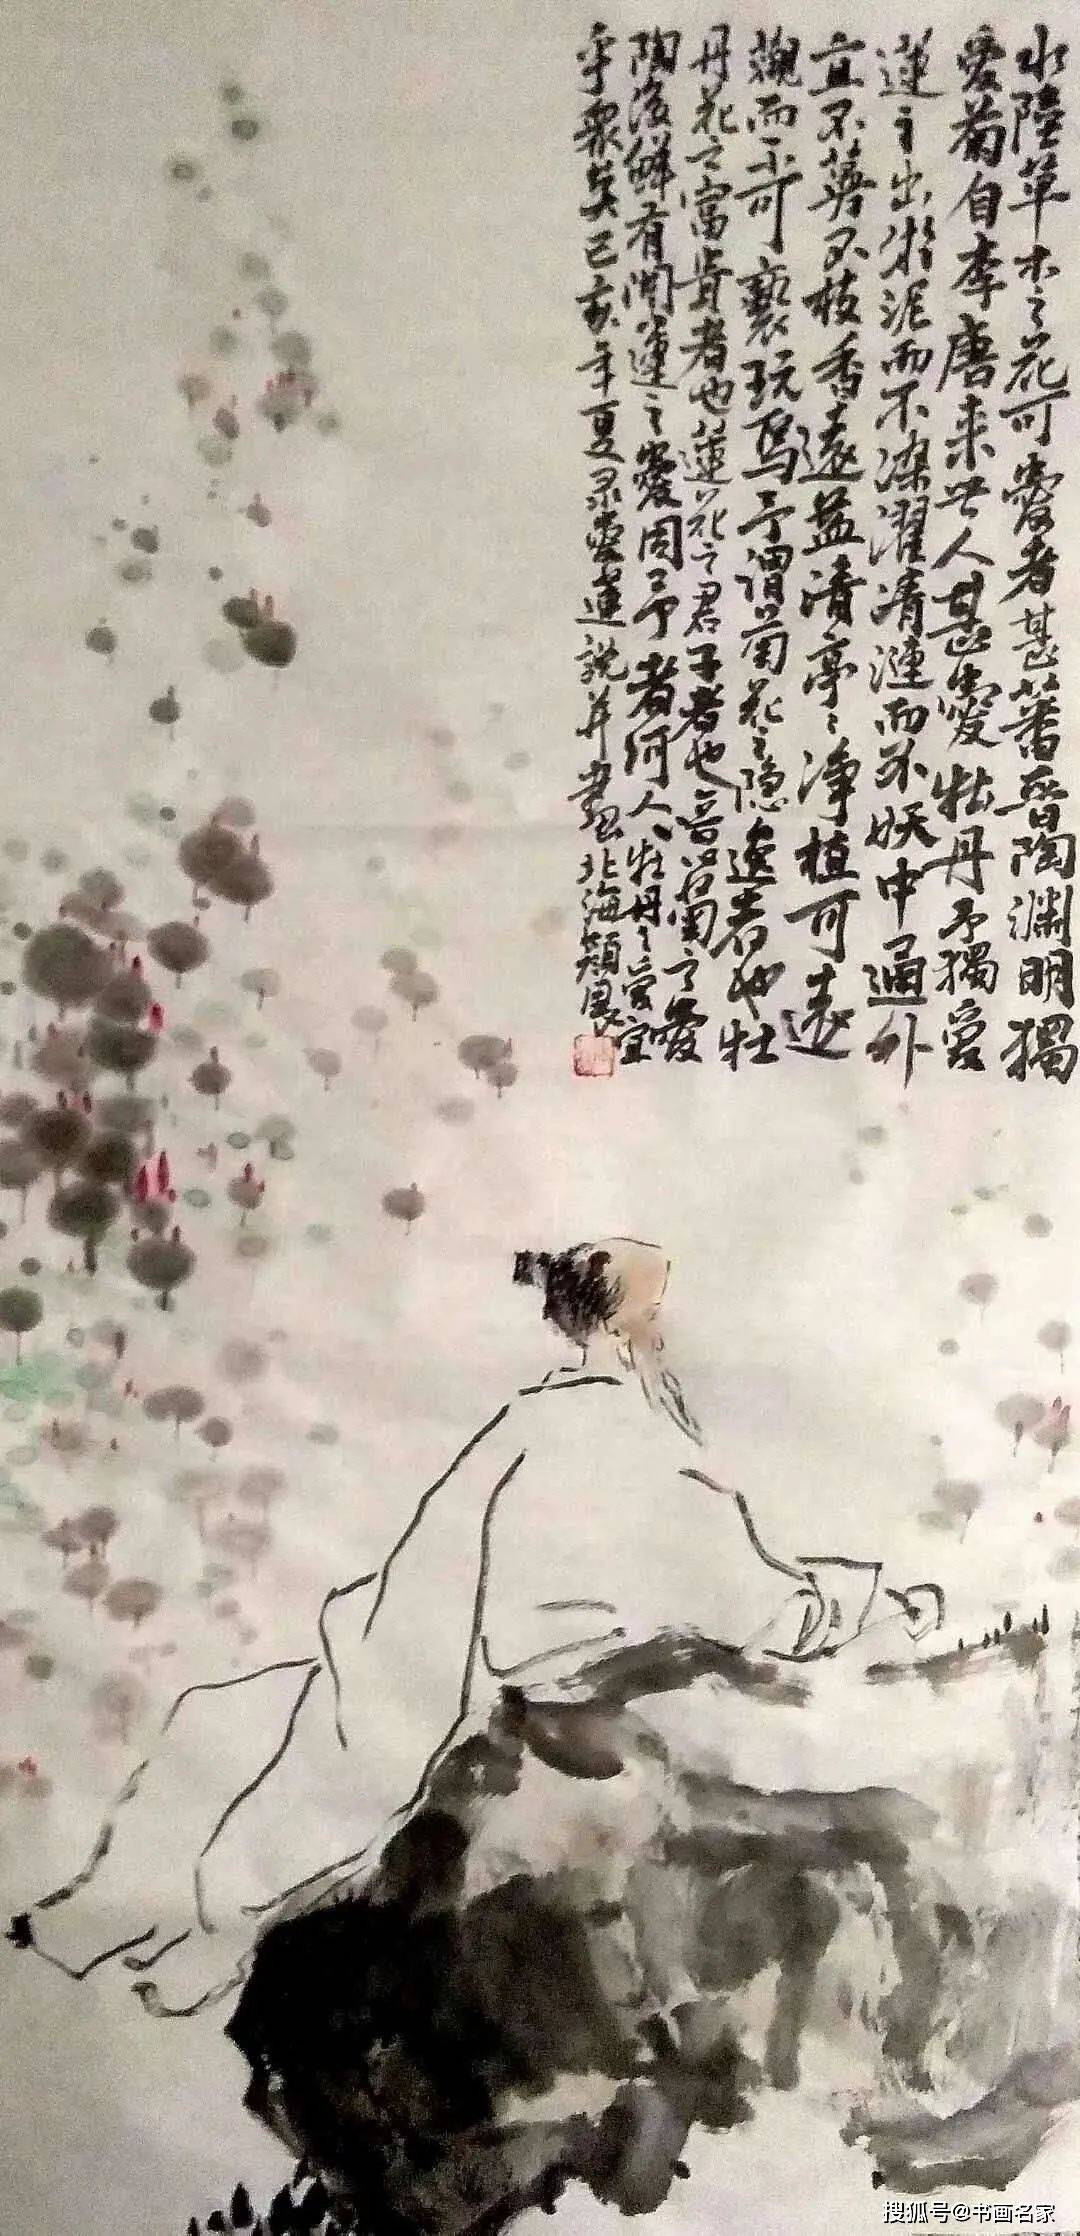 水陸草木之花可愛者甚蕃晋陶渊明獨
愛菊自李唐来世人甚愛牡丹予獨愛
蓮之出淤泥而不染濯清漣而不妖中通外
直不蔓不枝香遠益清亭〻净植可遠
觀而不可褻玩焉予謂菊花之隐逸者也牡
丹花之富貴者也蓮花之君子者也噫菊之愛
陶後鮮有聞蓮之愛同予者何人牡丹之愛宜
乎眾矣己亥年夏录愛蓮說并畫北海
搜狐号@书画名家